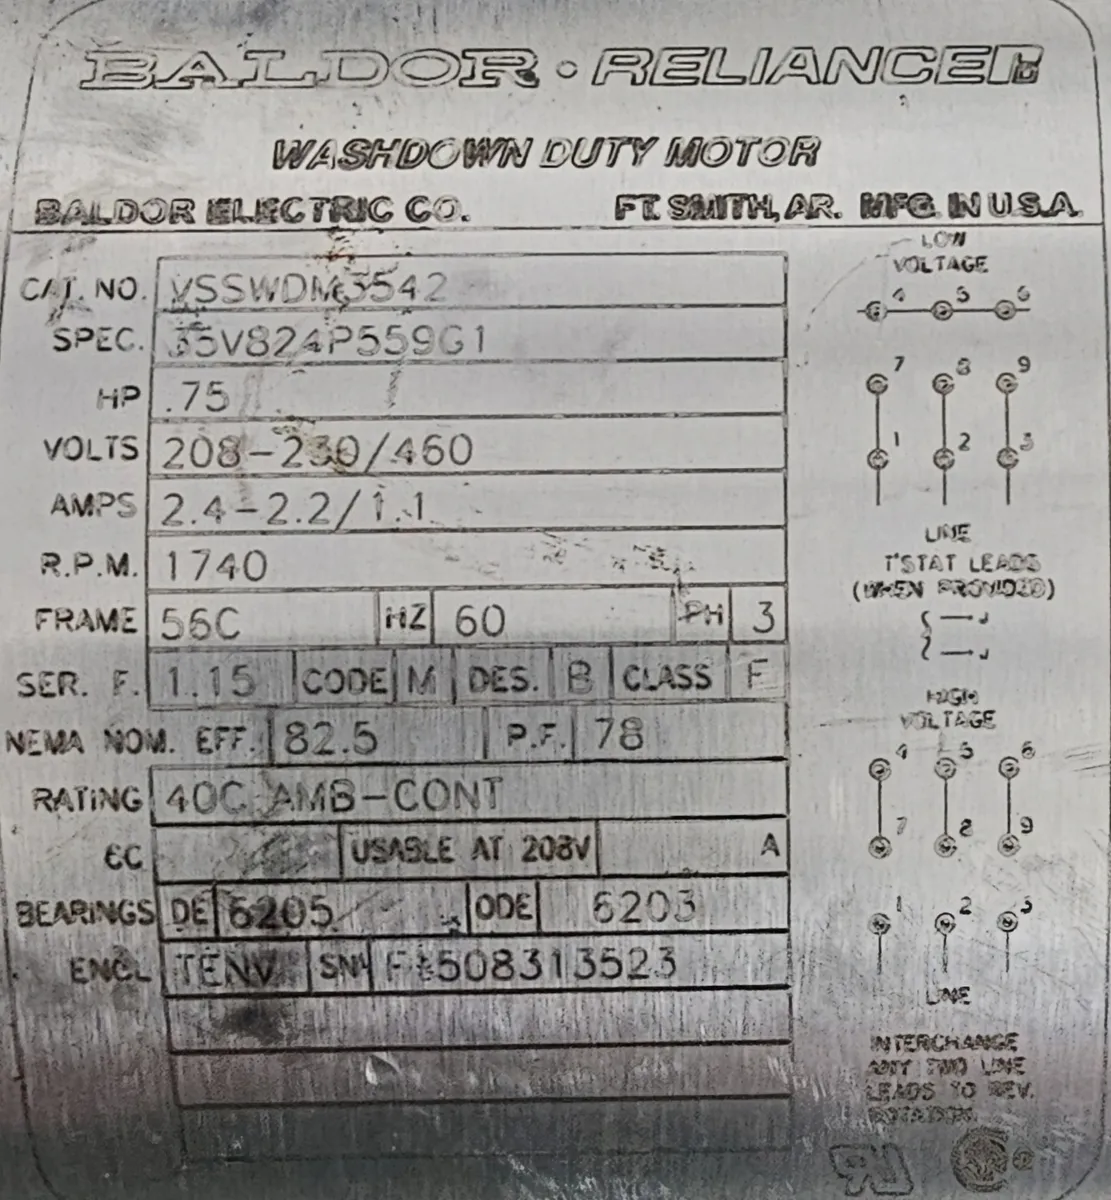 BALDOR · RELIANCER
WASHDOWN DUTY MOTOR
BALDOR ELECTRIC CO. FT. SMITH, AR. MFG. IN U.S.A.
CAT. NO. VSSWDM3542
SPEC. 35V824P559G1
HP .75
VOLTS 208-230/460
AMPS 2.4-2.2/1.1
R.P.M. 1740
FRAME 56C HZ 60 PH 3
SER. F. 1.15 CODE M DES. B CLASS F
NEMA NOM. EFF. 82.5 P.F. 78
RATING 40C AMB-CONT
CC USABLE AT 208V A
BEARINGS DE 6205 ODE 6203
ENCL TENV SN 508313523
LOW
VOLTAGE
4 5 6
7 8 9
1 2 3
LINE
T'STAT LEADS
(WHEN PROVIDED)
J
J
HIGH
VOLTAGE
4 5 6
7 8 9
1 2 3
LINE
INTERCHANGE
ANY TWO LINE
LEADS TO REV.
ROTATION.